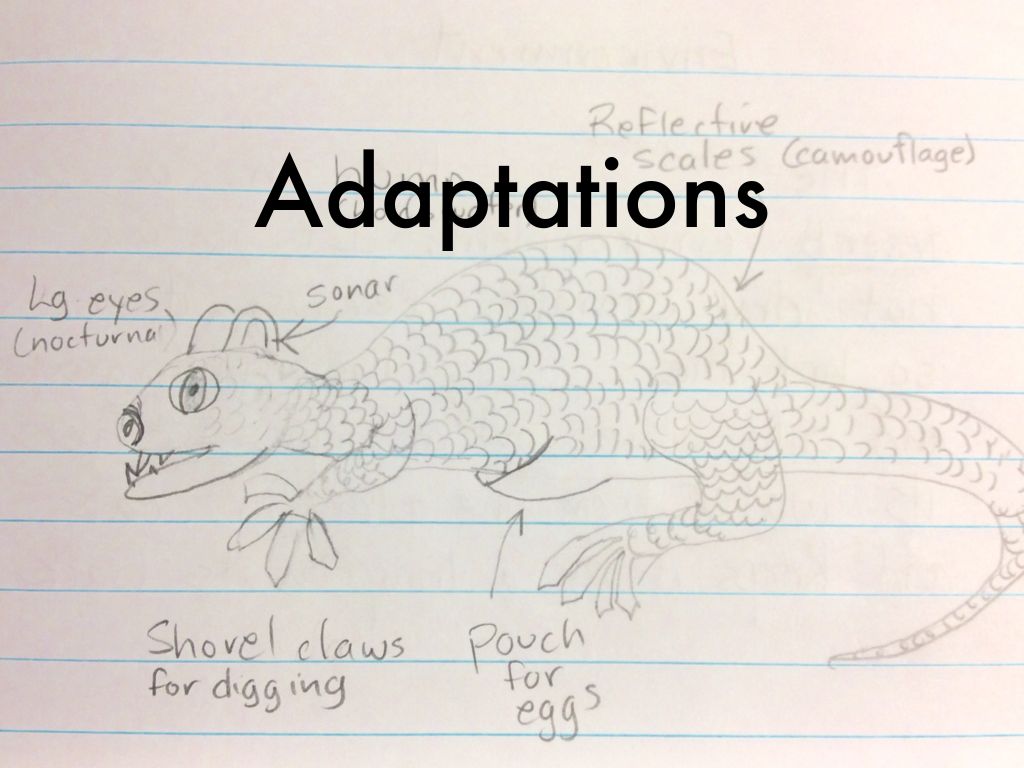 Reflective
scales (camouflage)
hump
Adaptations
Lg eyes
(nocturnal)
sonar
Shovel claws
for digging
pouch
for
eggs